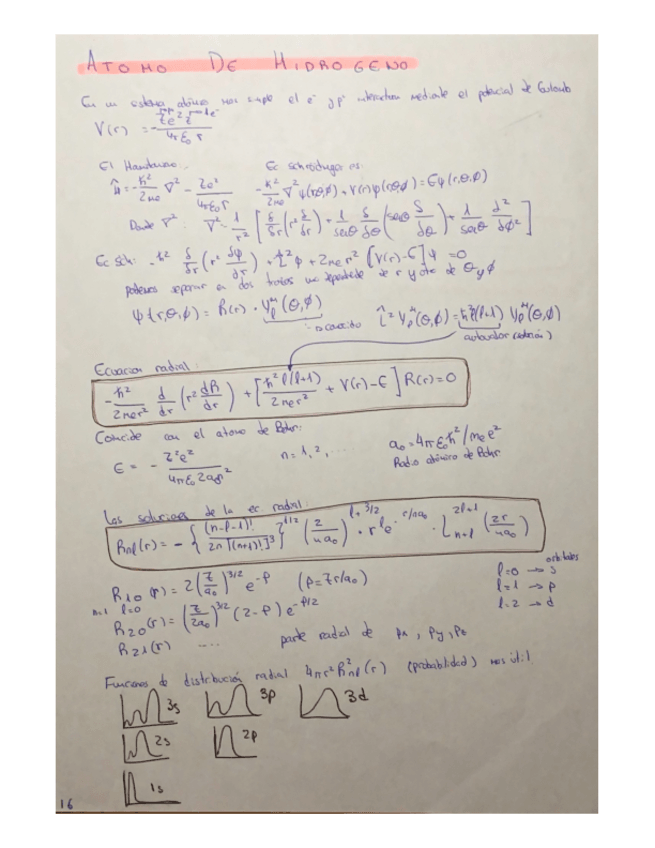 ATOMO DE HIDROGENO
En un sistema atómico mas simple el e⁻ y p⁺ interactuan mediante el potencial de Coulomb
V(r) = - Ze² / 4πε₀r
El Hamiltoniano.. Ec schrodinger es:
Ĥ = -ħ²/2me ∇² - Ze²/4πε₀r   -ħ²/2me ∇²ψ(r,θ,ϕ) + V(r)ψ(r,θ,ϕ) = Eψ(r,θ,ϕ)
Donde ∇²: ∇² = 1/r² [ δ/δr (r² δ/δr) + 1/senθ δ/δθ (senθ δ/δθ) + 1/senθ δ²/dϕ² ]
Ec Sch: -ħ² δ/δr (r² δψ/dr) + L̂²ψ + 2me r² [V(r) - E]ψ = 0
Podemos separar en dos trozos uno dependiente de r y otro de θ y ϕ
ψ(r,θ,ϕ) = R(r) · Yₗᴹ(θ,ϕ)   L̂² Yₗᴹ(θ,ϕ) = ħ²l(l+1) Yₗᴹ(θ,ϕ)
es conocido autovalor
Ecuacion radial:
-ħ²/2me r² d/dr (r² dR/dr) + [ħ² l(l+1)/2me r² + V(r) - E] R(r) = 0
Coincide con el atomo de Bohr:
E = - Z²e²/4πε₀2a₀n²   n = 1, 2, ...   a₀ = 4πε₀ħ²/mee²
Radio atómico de Bohr
Las soluciones de la ec radial:
Rnl(r) = - { (n-l-1)! / 2n[(n+l)!]³ }^1/2 (2/na₀)^l+3/2 · r^l e^-r/na₀ · L^2l+1_n+l (2r/na₀)
orbitales
R₁₀(r) = 2(Z/a₀)^3/2 e^-ρ   (ρ = Zr/a₀)   l=0 → s
n=1 l=0   l=1 → p
R₂₀(r) = (Z/2a₀)^3/2 (2-ρ) e^-ρ/2   l=2 → d
R₂₁(r) ..... parte radial de px, py, pz
Funciones de distribución radial 4πr²R²nl(r) (probabilidad) mas útil
3s 3p 3d
2s 2p
1s
16